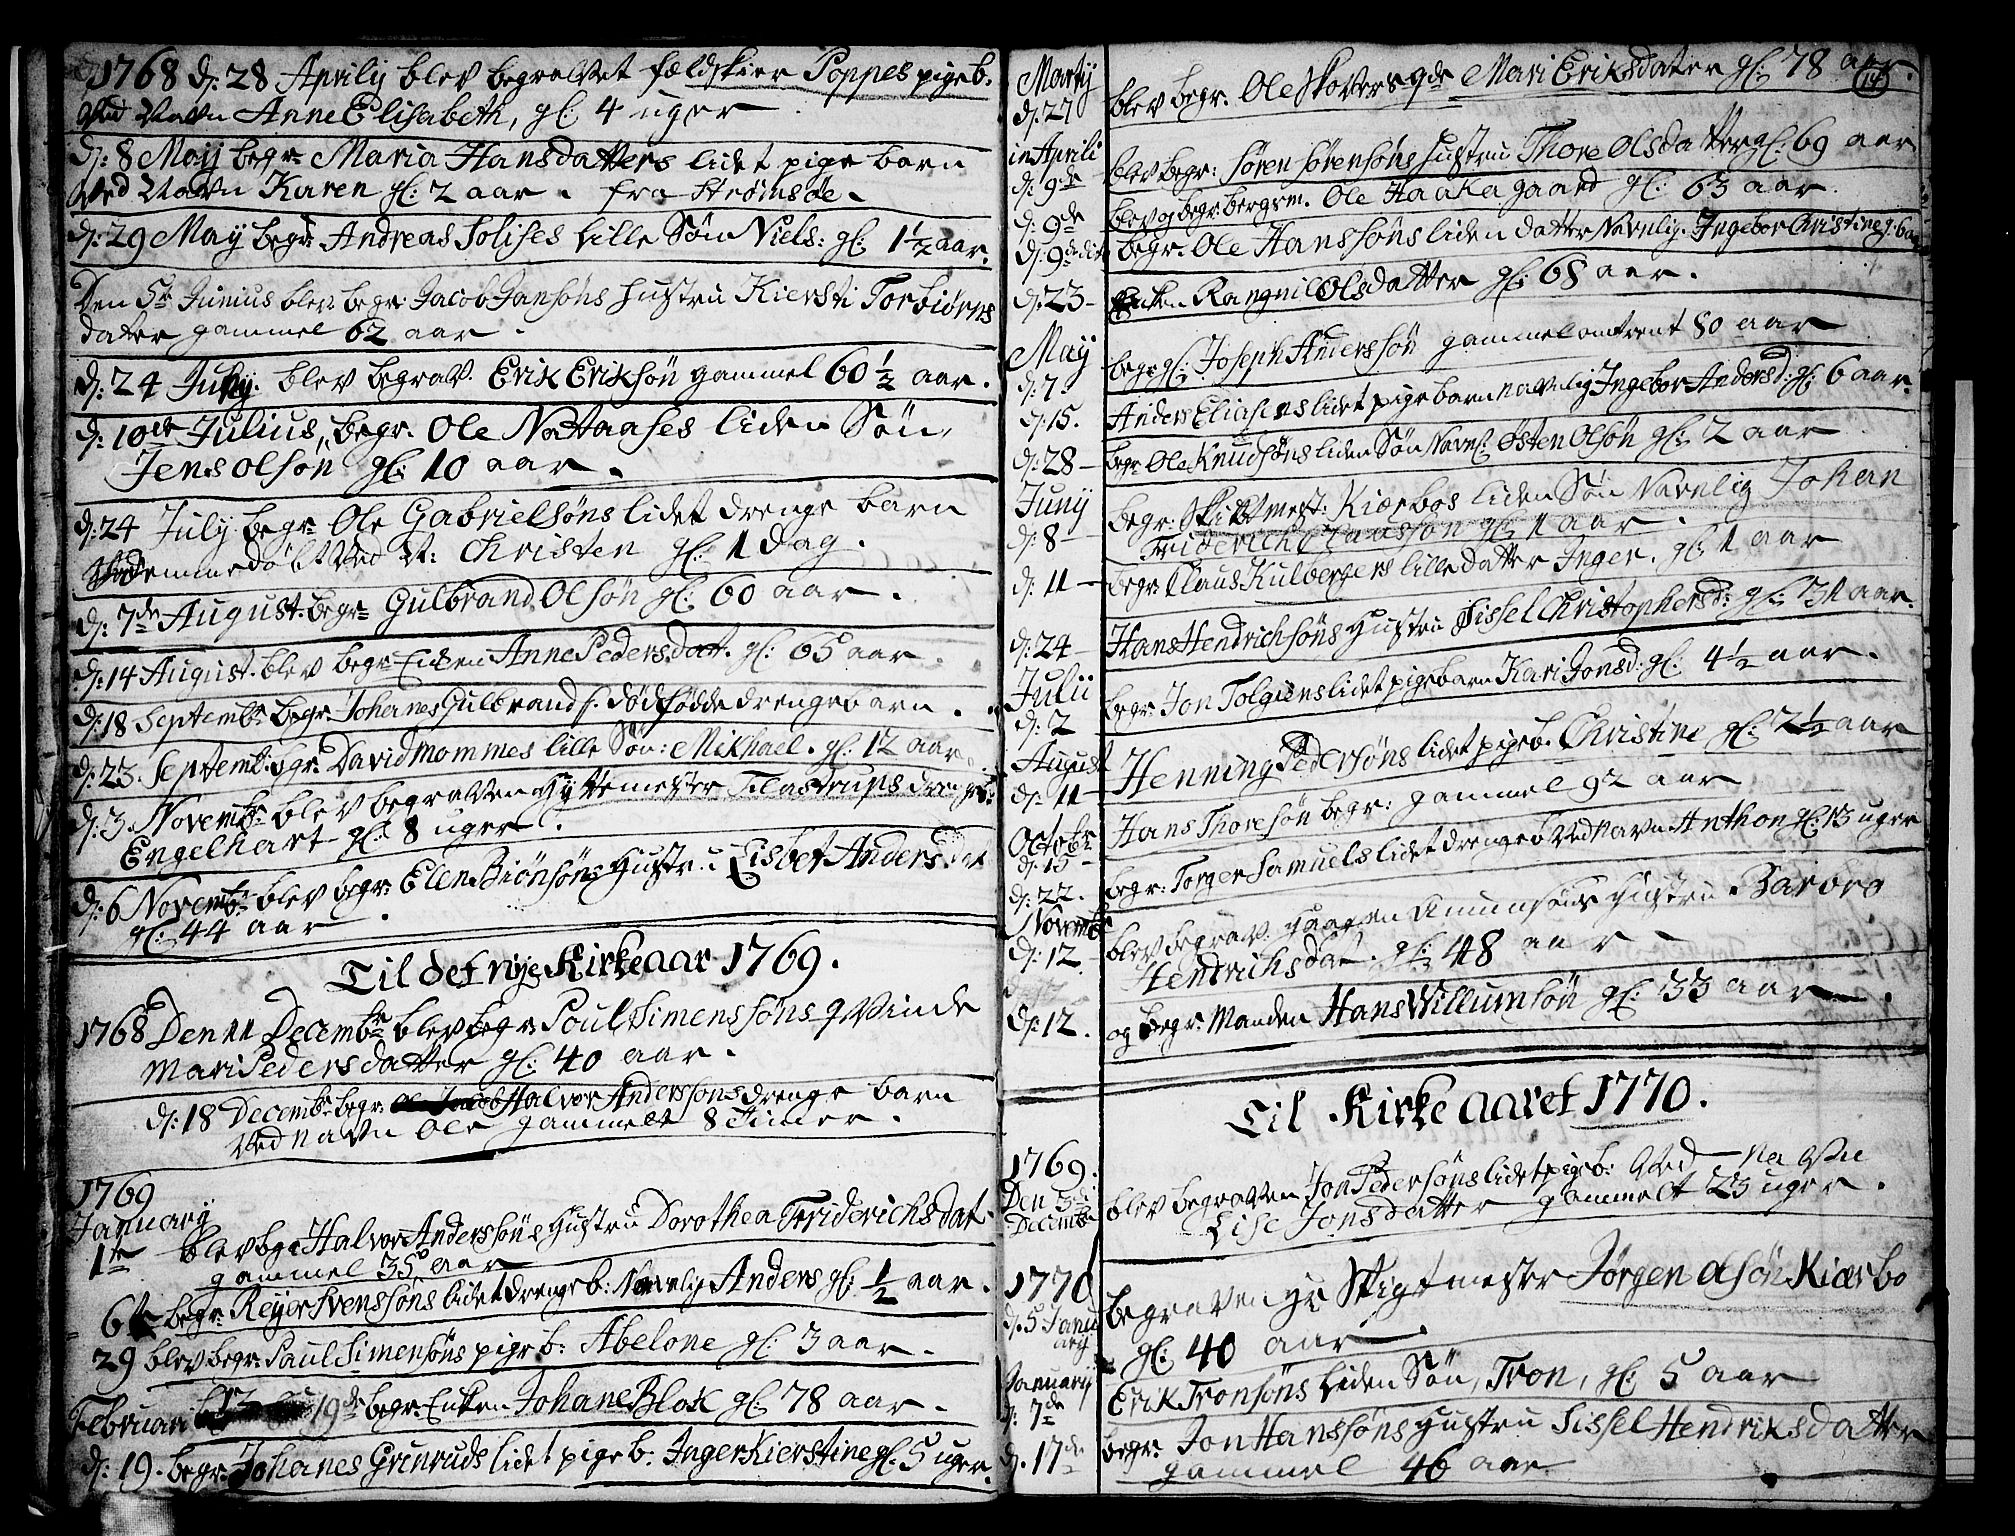 1768 d: 28 Aprilij blev begravet fældskier Poppes pigeb.
ved Navn Anne Elisabeth, gl: 4 uger
d: 8 Maij begr. Maria Hansdatters lidet pige barn
ved Navn Karen gl: 2 aar. fra Strømsøe.
d: 29 Maÿ begr: Andreas Solises lille Søn Niels: gl: 1 1/2 aar.
Den 5te Junius blev begr: Jacob Jansøns Hustru Kiersti Torbiørns
datter gammel 62 aar.
d: 24 July. blev begrav. Erik Eriksøn gammel 60 1/2 aar.
d: 10de Julius, begr. Ole Nattaases liden Søn,
Jens Olsøn gl: 10 aar.
d: 24 July begr Ole Gabrielsøns lidet drenge barn
hiemmedøbt ved N: Christen gl: 1 Dag.
d: 7de August. begr Gulbrand Olsøn gl: 60 aar.
d: 14 August. blev begr Enken Anne Pedersdat. gl: 65 aar.
d: 18 Septembr begr. Johanes Gulbrands. dødfødde drengebarn.
d: 23. Septemb. bgr. David Mommes lille Søn: Mikhael. gl: 12 aar.
d: 3. Novembr blev begraven Hyttemester Tilastrups drengeb:
Engelhart gl: 8 uger.
d: 6 Novembr blev begr: Elen Biønsøns Hustru Lisbet Andersdat
gl: 44 aar.
Til det nye Kirkeaar 1769.
1768 Den 11 Decembr blev begr: Poul Simenssøns qvinde
Mari Pedersdatter gl: 40 aar.
d: 18 Decembr begr. Halvor Anderssøns drenge barn
ved navn Ole gammelt 8 Timer.
1769
January
1te blev bgr Halvor Anderssøns Hustru Dorothea Friderichsdat.
gammel 35 aar
6te begr: Reyer Svenssøns lidet drengeb: Navnlig Anders gl: 1/2 aar.
29 blev begr: Paul Simensøns pigeb: Abelone gl: 3 aar.
Februari 19de begr: Enken Johane Blok gl: 78 aar.
d: 19. begr: Johanes Grinruds lidet pigeb: Inger Kierstine gl: 5 uger.
14
Martij
d: 27 blev begr. Ole Skovers qde Mari Eriksdater gl: 78 aar.
in Aprili
d: 9de blev begr: Søren Sørensøns Hustru Thore Olsdatter gl: 69 aar
d: 9de blev og begr bergsm. Ole Haakagaard gl: 63 aar.
d: 9de dit. begr. Ole Hanssøns liden datter Navnlig. Ingebor Christine g: 6 aar
d: 23 Enken Rangnil Olsdatter gl: 68 aar.
Maÿ
d: 7. begr gl: Joseph Anderssøn gammel omtrent 80 aar
d: 15. Anders Eliasens lidet pigebarn navnlig Ingebor Andersd: gl: 6 aar.
d: 28 begr Ole Knudsøns liden Søn Navnl. Østen Olsøn gl: 2 aar
Junÿ
d: 8 begr: Skiktmest: Kierbos liden Søn Navnlig Johan
Friderich gl: 1 aar.
d: 11 begr. Claus Kulbergers lille datter Inger. gl: 1 aar
d: 24 Hans Hendrichsøns Hustru Sissel Christophersd: gl: 31 aar.
Julii
d: 2 begr: Jon Tolgiens lidet pigebarn Kari Jonsd: gl: 4 1/2 aar.
August
d: 11 Henning Pedersøns lidet pigeb. Christine gl: 2 1/2 aar
Octobr
d: 15 Hans Thoresøn begr: gammel 92 aar
d: 22. begr: Torger Samuels lidet drengeb ved navn Anthon gl: 13 uger
Novembr
d: 12. blev begrav. Haagen Amunsøns Hustru Barbro
Hendrichsdat. gl: 48 aar
d: 12. og begr: Manden Hans Willumsøn gl: 33 aar.
Til Kirkeaaret 1770.
1769.
Den 3de
Decembr blev begraven Jon Pedersøns lidet pigeb: Ved Navn
Lise Jonsdatter gammelt 23 uger.
1770
d: 5 Janu
arij begraven Hr Skigtmester Jørgen Olsøn Kierbo
gl: 40 aar.
January
d: 7de Erik Tronsøns liden Søn, Tron, gl: 5 aar
d. 17de begr: Jon Hanssøns Hustru Sissel Hendriksdatter
gammel 46 aar